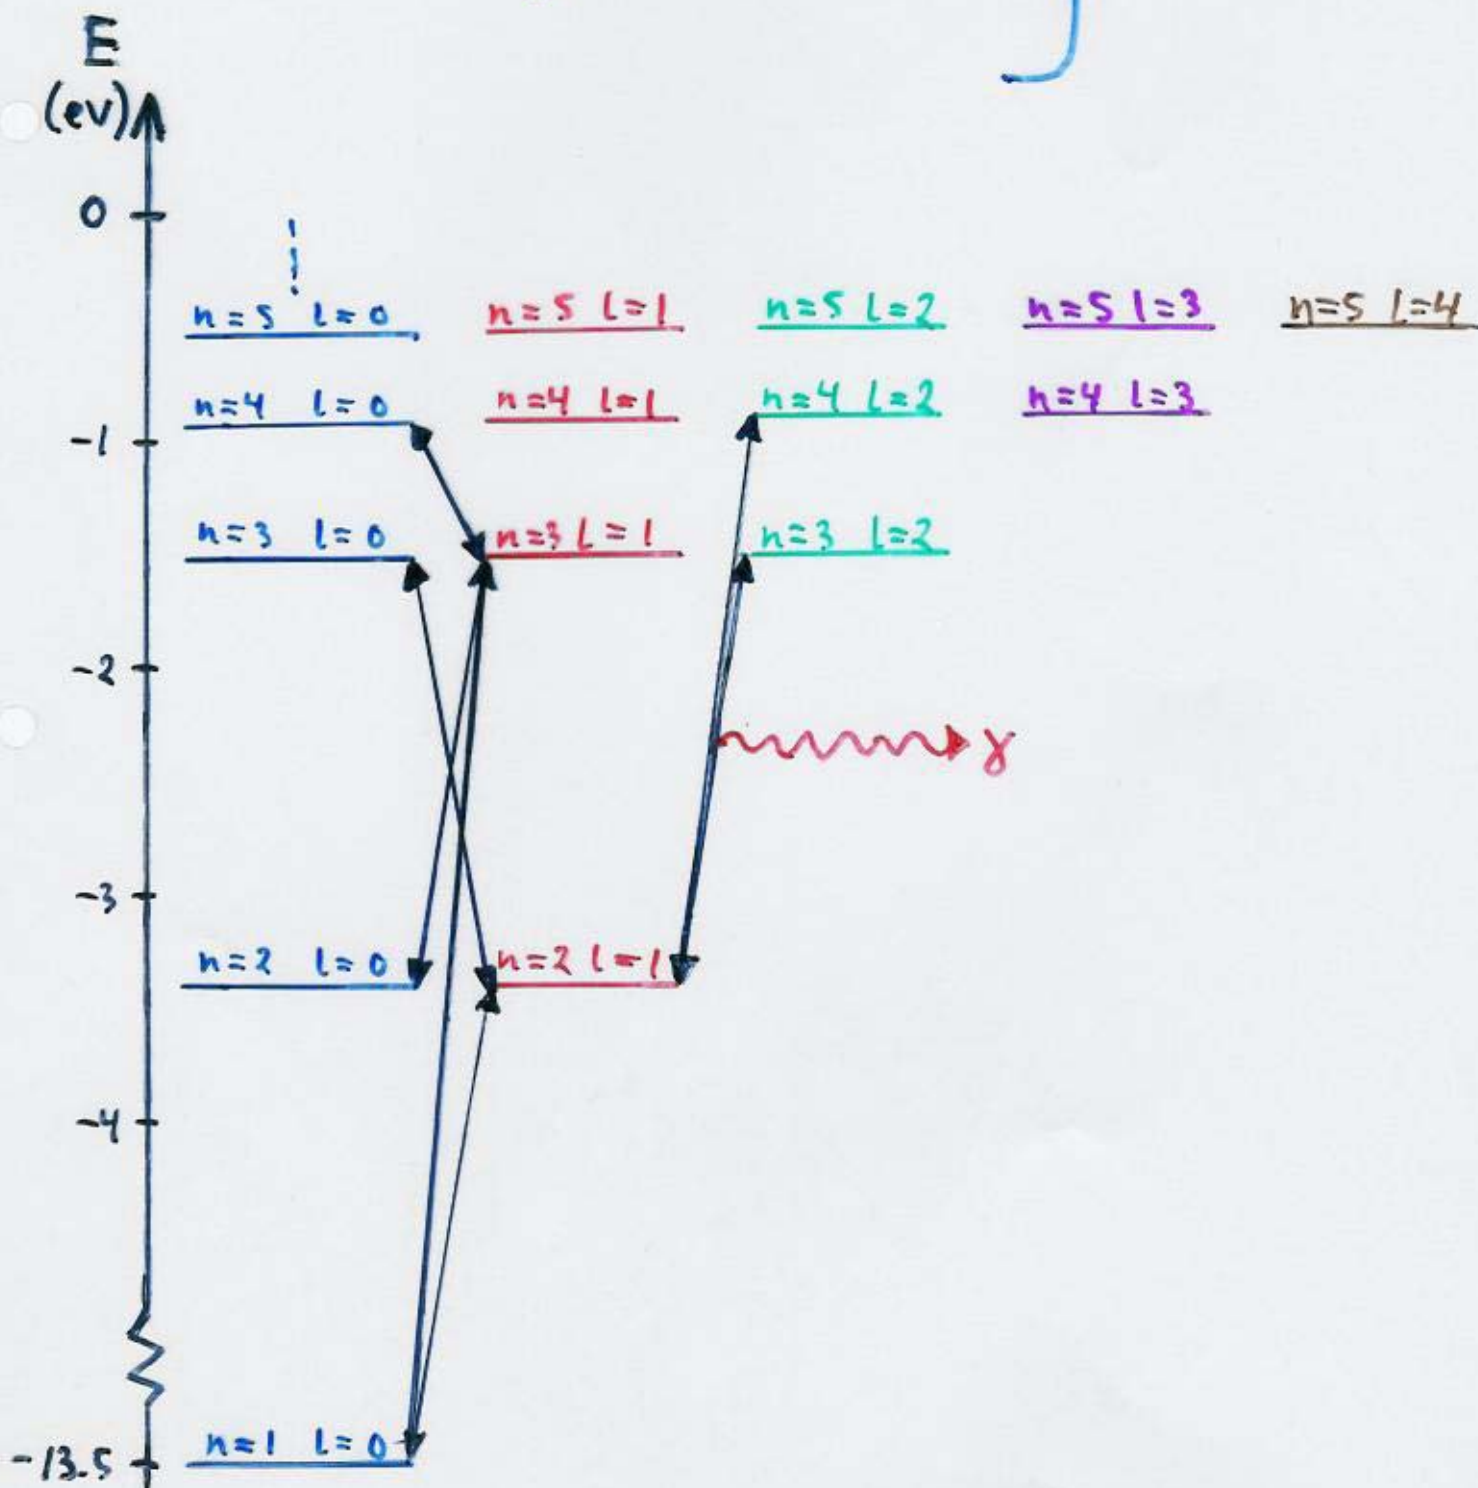 E
(ev)
0
n=5 l=0 n=5 l=1 n=5 l=2 n=5 l=3 n=5 l=4
n=4 l=0 n=4 l=1 n=4 l=2 n=4 l=3
-1
n=3 l=0 n=3 l=1 n=3 l=2
-2
γ
-3
n=2 l=0 n=2 l=1
-4
n=1 l=0
-13.5